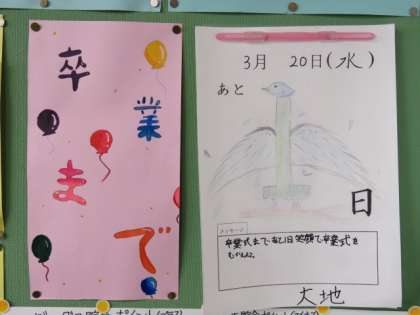 卒業まで
3月 20日(水)
あと
1
日
メッセージ
卒業式まであと1日笑顔で卒業式を
むかえよう。
大地